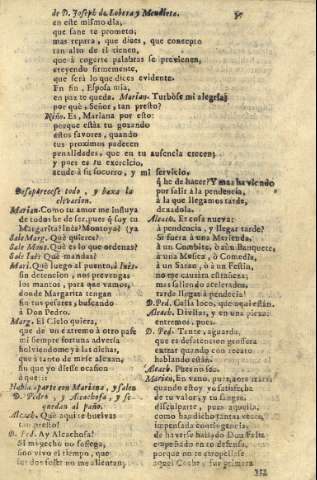 de D. Joseph de Lobera y Mendieta.
en este mismo dia,
que sane te prometo;
mas repara, que dices, que concepto
tan alto de él tienen,
que à cogerte palabras se previenen,
creyendo firmemente,
que será lo que dices evidente.
En fin, Esposa mia,
en paz te queda. Marian. Turbòse mi alegria;
por què, Señor, tan presto?
Niño. Es, Mariana por esto:
porque estàs tu gozando
estos favores, quando
tus proximos padecen
penalidades, que en tu ausencia crecen;
y pues es tu exercicio,
acude à su socorro, y mi servicio.
Desaparecese todo, y baxa la
elevacion.
Marian. Como tu amor me influya
de todos he de ser, pues que soy tu
Margarita? Inès? Montoya? (ya
Sale Marg. Què quieres?
Sale Mont. Què es lo que ordenas?
Sale Inès Què mandas?
Mari. Què luego al punto, Inès,
sin detencion, nos prevengas
los mantos, para que vamos,
donde Margarita tengan
fin tus pesares, buscando
à Don Pedro.
Marg. El Cielo quiera,
que de un extremo à otro passe
mi siempre fortuna adversa
bolviendome yà las dichas,
que à tanto de mirle alexan,
sin que yo diesse ocasion
à que::
Habla aparte con Mariana, y salen
D. Pedro, y Alcachofa, y se
quedan al paño.
Alcach. Què aqui te buelvas
tan presto?
D. Ped. Ay Alcachofa!
Si mi pecho no sossiega,
sino vivo el tiempo, que
sus dos soles no me alientan,
q̃ he de hacer? Y mas haviendo
por salir à la pendencia,
à la que llegamos tarde,
dexadola.
Alcach. Es cosa nueva:
à pendencia, y llegar tarde?
Si fuera à una Merienda,
à un Combite, ò à un Banquete,
à una Musica, ò Comedia,
à un Sarao, ò à un Festin,
no me causàra estrañeza;
mas saliendo acelerados,
tarde llegas à pendencia!
D. Ped. Calla loco, que aqui estàn.
Alcach. Dixelas, y en una pieza:
entremos, pues.
D. Ped. Tente, aguarda,
que es desatencion grossera
entrar quando con recato
hablando estàn.
Alcach. Pues no sea.
Marian. En vano,
quando estoy yo satisfecha
de tu valor, y tu sangre,
disculparte, pues aquella,
como has dicho tantas veces,
impensada contingencia,
de haverse hallado Don Felix
empeñado en tu defensa,
porque no te atropellasse
aquel Coche, fue primera